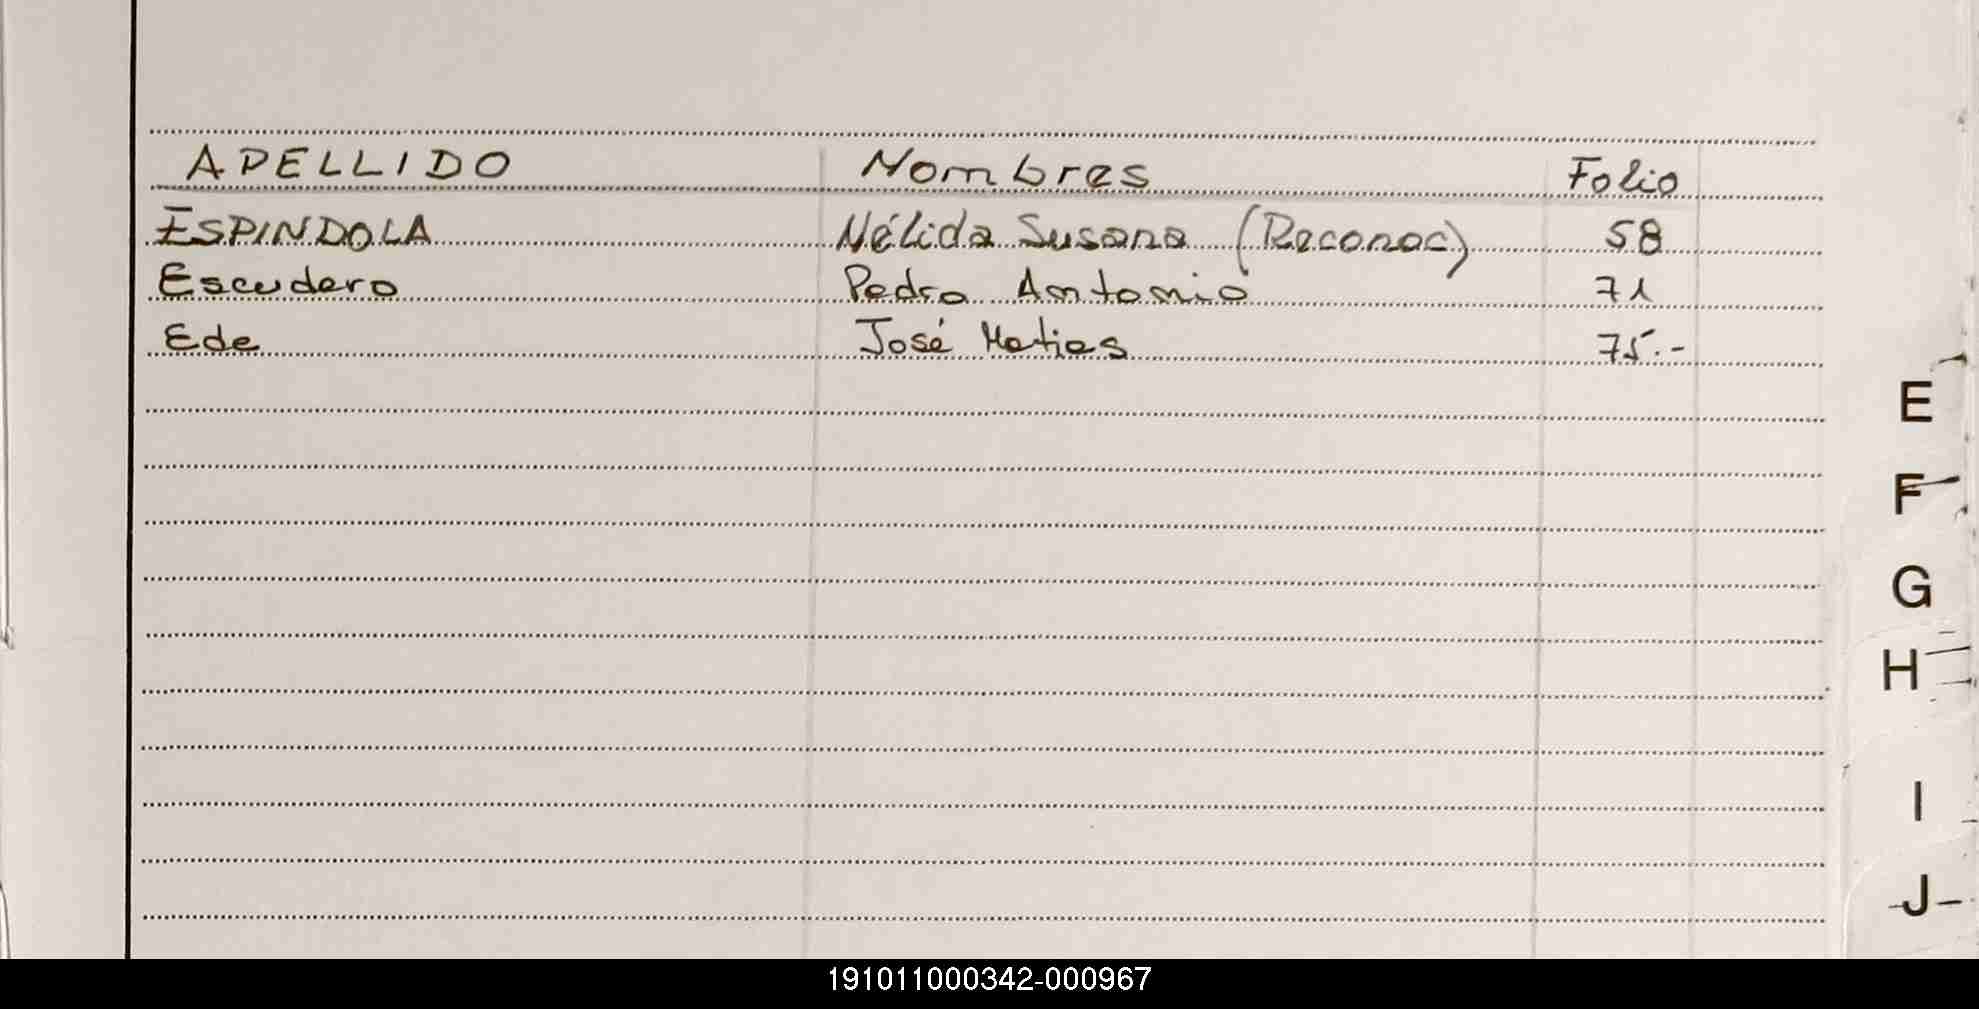 APELLIDO Nombres Folio
ESPINDOLA Nélida Susana (Reconoc) 58
Escudero Pedro Antonio 71
Ede José Matias 75.-
E
F
G
H
I
J
191011000342-000967